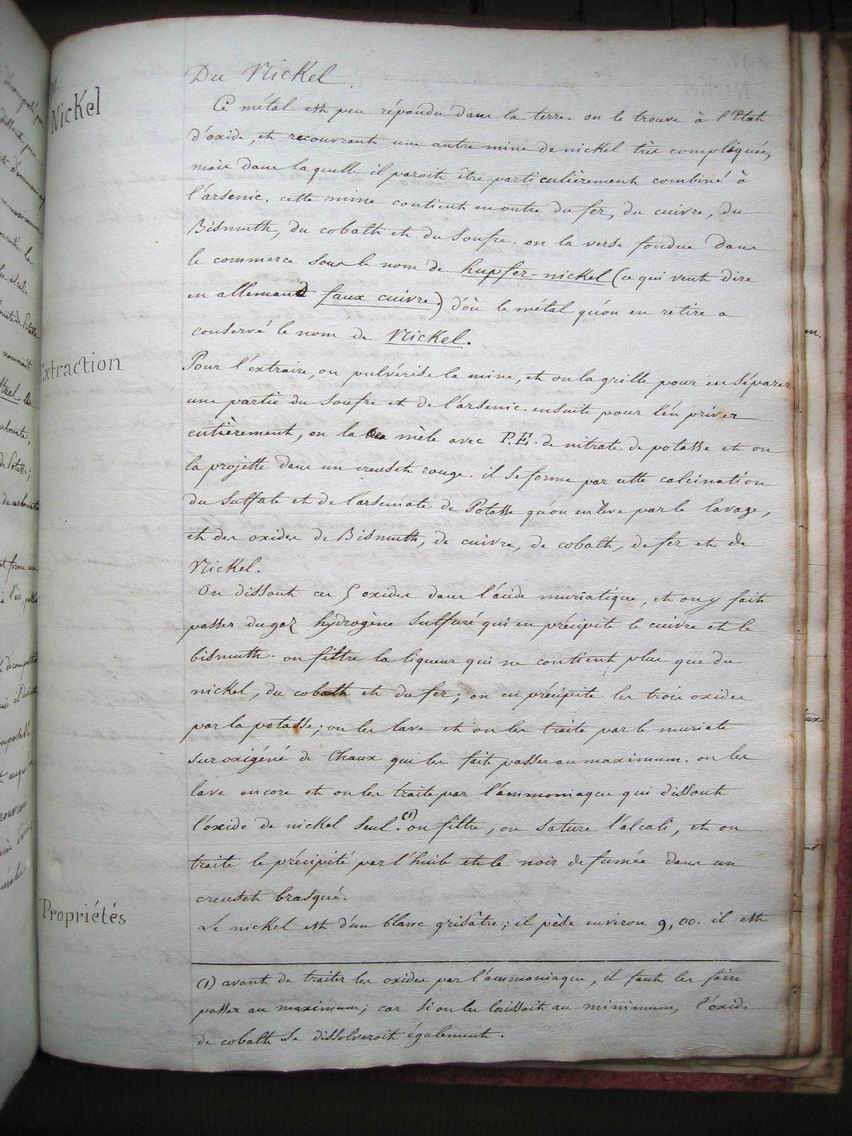 Nickel
Du Nickel.
Ce métal est peu répandu dans la terre. on le trouve à l'Etat
d'oxide, et recouvrant une autre mine de nickel très compliquée,
mais dans laquelle il paroit être particulièrement combiné à
l'arsenic. cette mine contient en outre du fer, du cuivre, du
Bismuth, du cobalt et du Soufre. on la verse fondue dans
le commerce sous le nom de kupfer-nickel (ce qui veut dire
en allemand faux cuivre) d'où le métal qu'on en retire a
conservé le nom de Nickel.
Extraction
Pour l'extraire, on pulvérise la mine, et on la grille pour en séparer
une partie du Soufre et de l'arsenic. ensuite pour l'en priver
entièrement, on la mèle avec P.E. de nitrate de potasse et on
la projette dans un creuset rouge. il se forme par cette calcination
du Sulfate et de l'arseniate de Potasse qu'on enlève par le lavage,
et des oxides de Bismuth, de cuivre, de cobalt, de fer et de
Nickel.
On dissout ces 5 oxides dans l'acide muriatique, et on y fait
passer du gaz hydrogène Sulfuré qui en précipite le cuivre et le
bismuth. on filtre la liqueur qui ne contient plus que du
nickel, du cobalt et du fer; on en précipite les trois oxides
par la potasse; on les lave et on les traite par le muriate
Suroxigéné de Chaux qui les fait passer au maximum. on les
lave encore et on les traite par l'ammoniaque qui dissout
l'oxide de nickel seul.(1) on filtre, on sature l'alcali, et on
traite le précipité par l'huile et le noir de fumée dans un
creuset brasqué.
Propriétés
Le nickel est d'un blanc grisâtre; il pèse environ 9,00. il est
(1) avant de traiter les oxides par l'ammoniaque, il faut les faire
passer au maximum; car si on les laissoit au minimum, l'oxide
de cobalt se dissolveroit également.